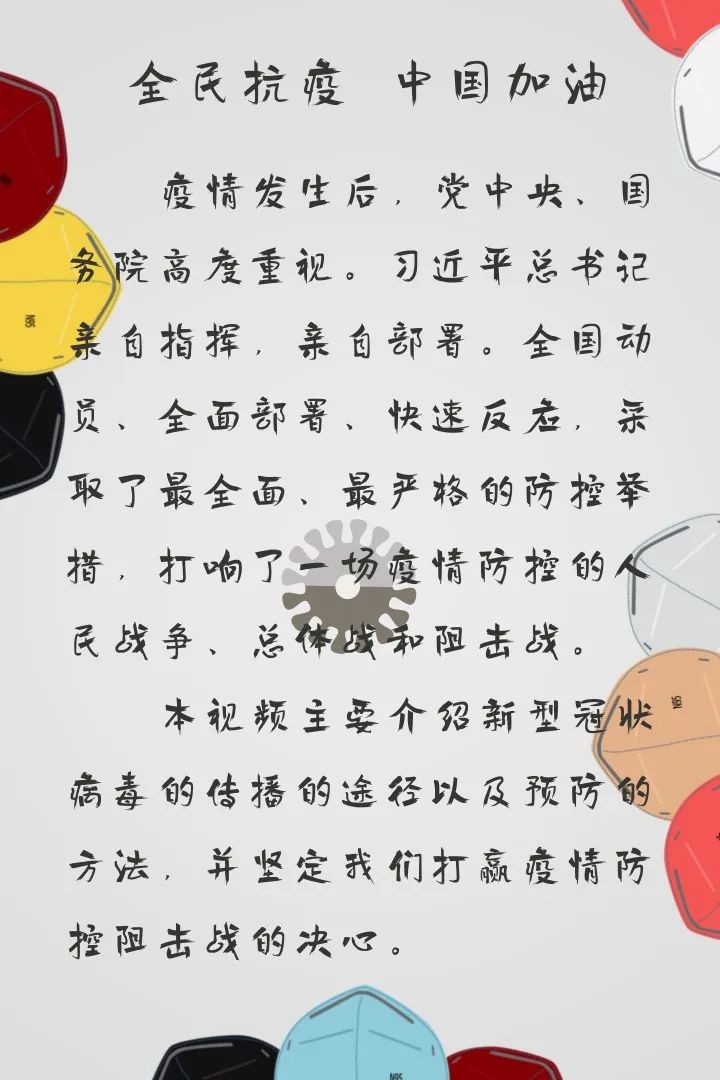 全民抗疫 中国加油
疫情发生后，党中央、国
务院高度重视。习近平总书记
亲自指挥，亲自部署。全国动
员、全面部署、快速反应，采
取了最全面、最严格的防控举
措，打响了一场疫情防控的人
民战争、总体战和阻击战。
本视频主要介绍新型冠状
病毒的传播的途径以及预防的
方法，并坚定我们打赢疫情防
控阻击战的决心。
N95